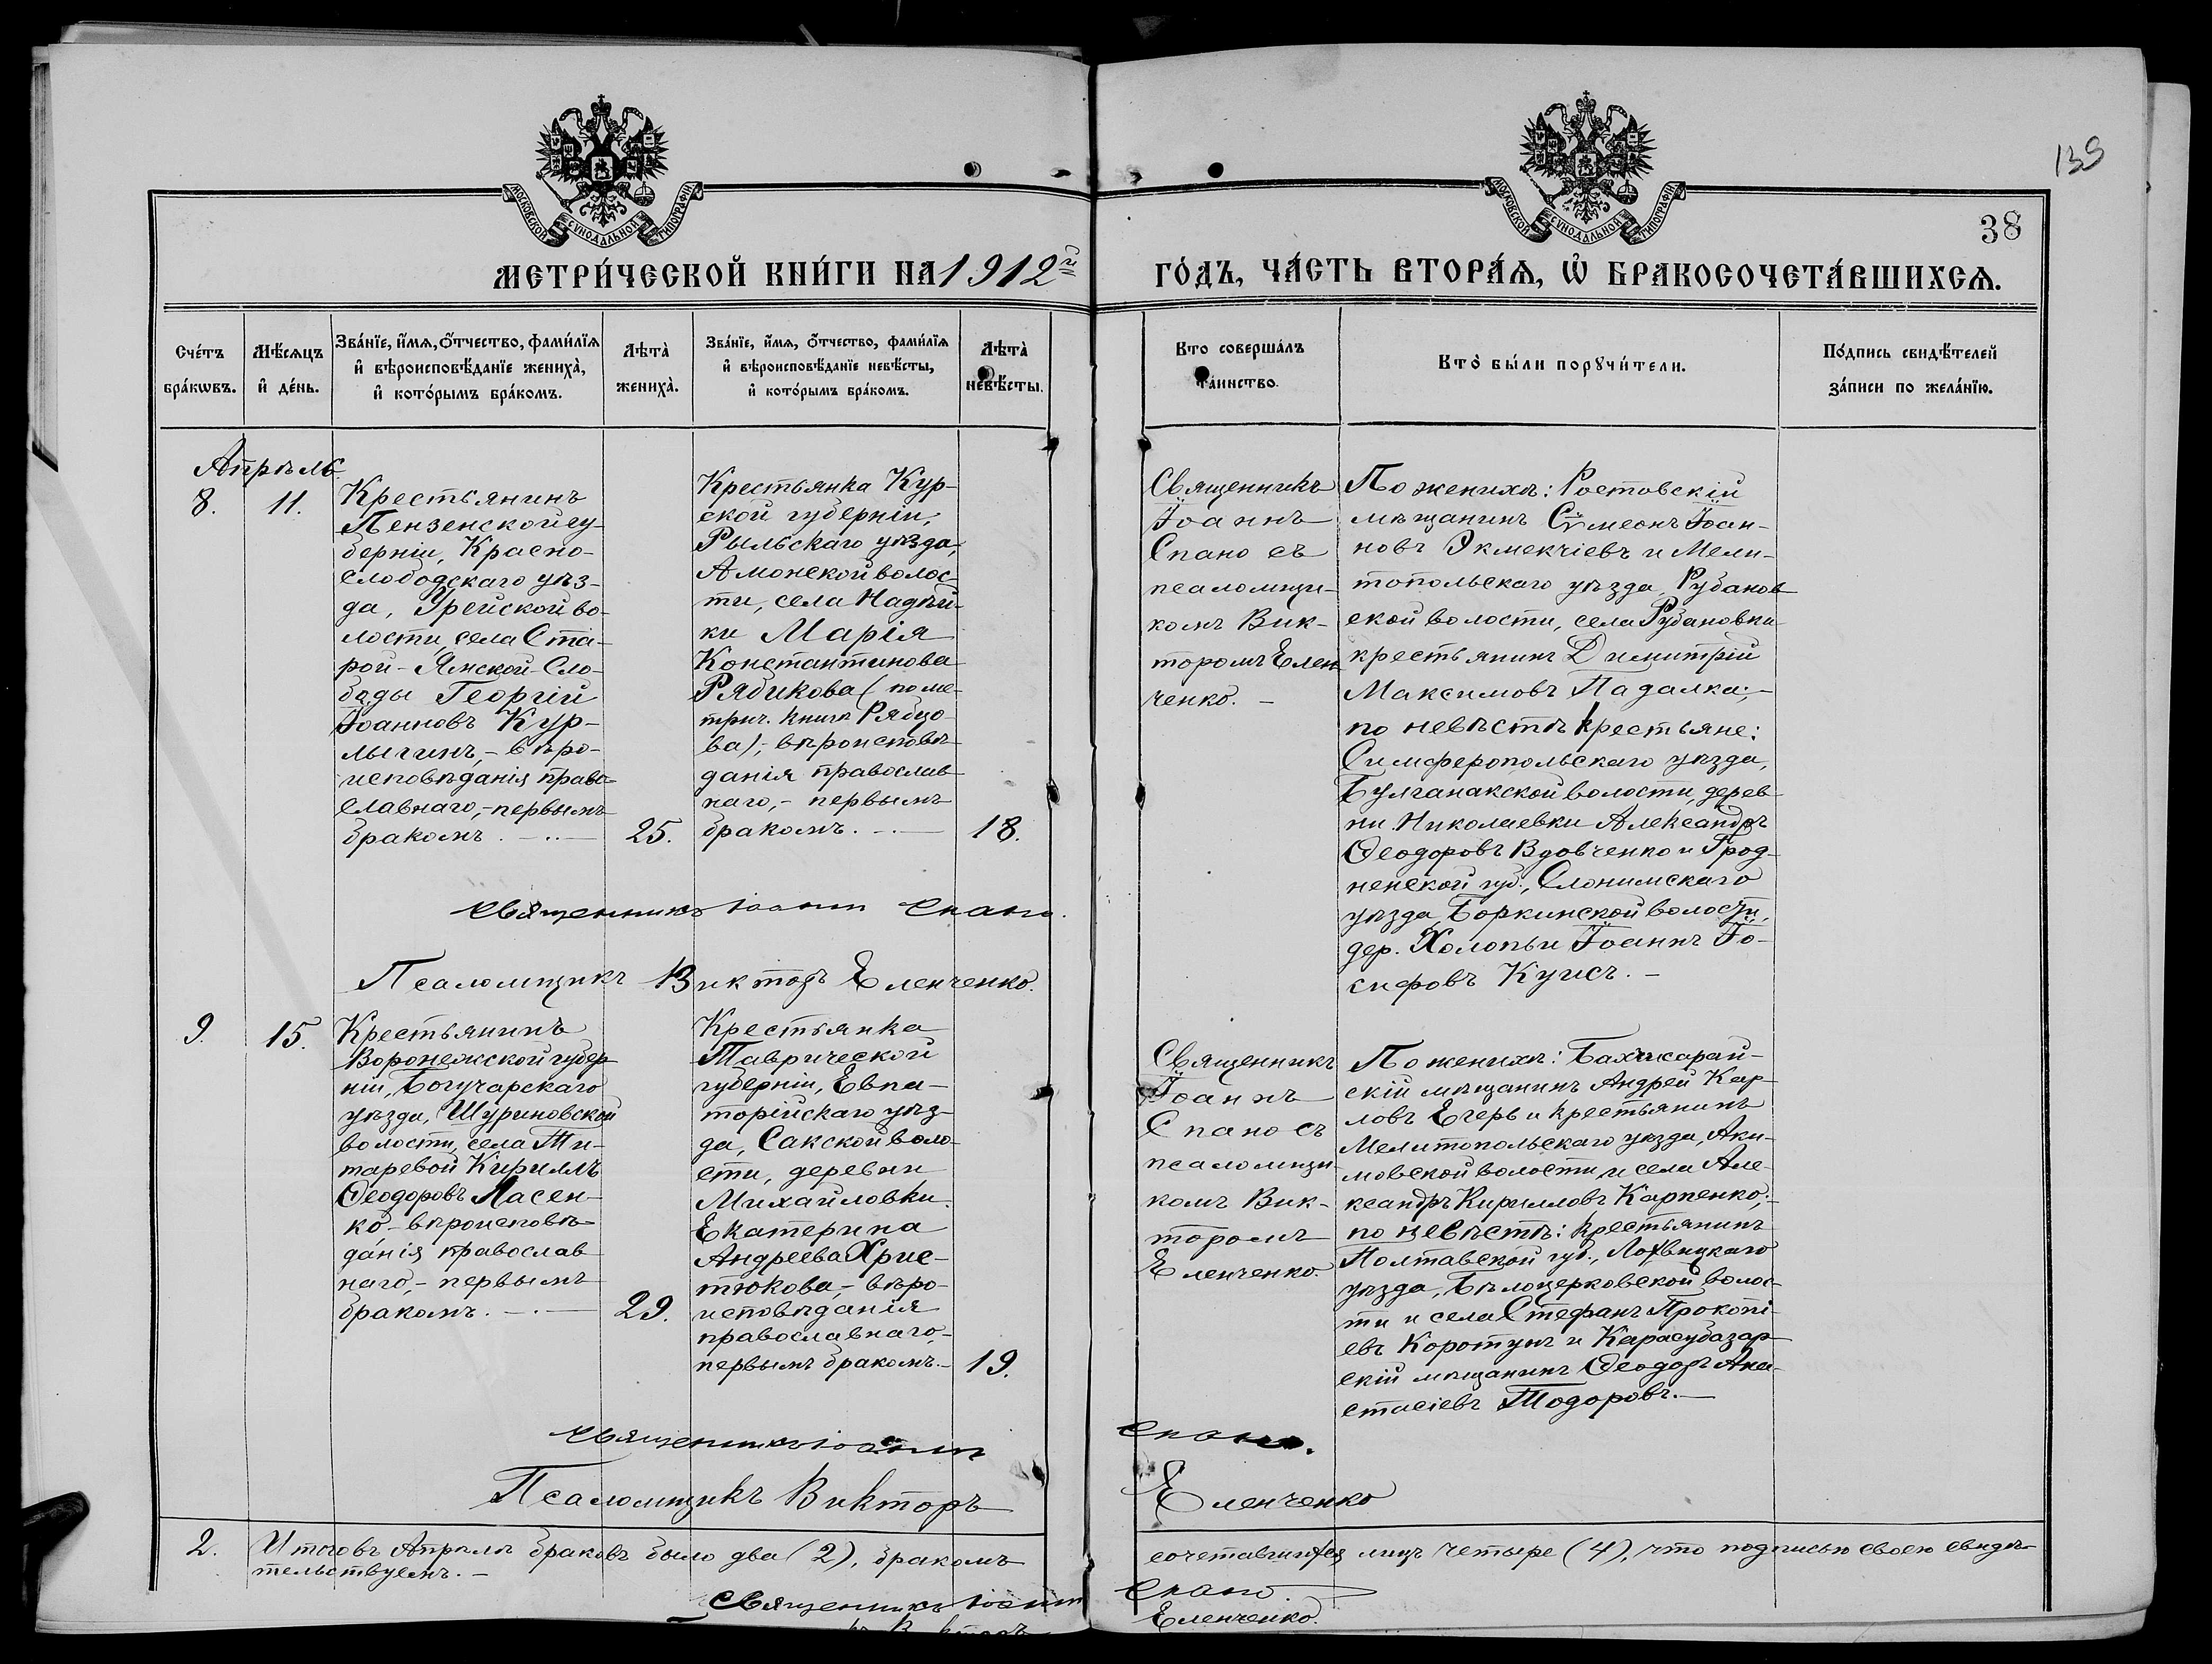 139
38
МОСКОВСКОЙ СѴНОДАЛЬНОЙ ТИПОГРАФІИ
МОСКОВСКОЙ СѴНОДАЛЬНОЙ ТИПОГРАФІИ
МЕТРИ́ЧЕСКОЙ КНИ́ГИ НА 1912й
ГО́ДЪ, ЧА́СТЬ ВТОРА́Ѧ, Ѽ БРАКОСОЧЕТА́ВШИХСѦ.
Сче́тъ
бра́кѡвъ.
Мѣ́сѧцъ
и҆ де́нь.
Зва́нїе, и҆́мѧ, ѻ҆́тчество, фами́лїѧ
и҆ вѣроисповѣ́данїе жениха̀,
и҆ кото́рымъ бра́комъ.
Лѣта̀
жениха̀.
Зва́нїе, и҆́мѧ, ѻ҆́тчество, фами́лїѧ
и҆ вѣроисповѣ́данїе невѣ́сты,
и҆ кото́рымъ бра́комъ.
Лѣта̀
невѣ́сты.
Кто соверша́лъ
та́инство.
Кто̀ бы́ли порꙋчи́тели.
По́дпись свидѣ́телей
за́писи по жела́нїю.
Апрѣль
8.
11.
Крестьянинъ
Пензенской гу-
берніи, Красно-
слободскаго уѣз-
да, Урейской во-
лости, села Ста-
рой-Ямской-Сло-
боды Георгій
Іоанновъ Кур-
лыгинъ,- вѣро-
исповѣданія право-
славнаго,- первымъ
бракомъ.
25.
Крестьянка Кур-
ской губерніи,
Рыльскаго уѣзда,
Амонской волос-
ти, села Надѣй-
ки Марія
Константинова
Рябикова (по ме-
трич. книгѣ Рябцо-
ва);- вѣроисповѣ-
данія православ-
наго,- первымъ
бракомъ.
18.
Священникъ
Іоаннъ
Спано съ
псаломщи-
комъ Вик-
торомъ Елен-
ченко.-
По женихѣ: Ростовскій
мѣщанинъ Сѵмеонъ Іоан-
новъ Экмекчіевъ и Мели-
топольскаго уѣзда, Рубанов-
ской волости, села Рубановки
крестьянинъ Димитрій
Максимовъ Падалка;-
по невѣстѣ крестьяне:
Симферопольскаго уѣзда,
Булганакской волости, дерев-
ни Николаевки Александръ
Ѳеодоровъ Вдовченко и Грод-
ненской губ., Слонимскаго
уѣзда, Боркинской волости,
дер. Холопьи Іоаннъ Іо-
сифовъ Куисъ.-
Священникъ Іоаннъ Спано.
Псаломщикъ Викторъ Еленченко.
9.
15.
Крестьянинъ
Воронежской губер-
ніи, Богучарскаго
уѣзда, Шуриновской
волости, села Ти-
таревой Кириллъ
Ѳеодоровъ Ласен-
ко.- вѣроисповѣ-
данія православ-
наго,- первымъ
бракомъ.
29.
Крестьянка
Таврической
губерніи, Евпа-
торійскаго уѣз-
да, Сакской воло-
сти, деревни
Михайловки
Екатерина
Андреева Хрис-
тюкова,- вѣро-
исповѣданія
православнаго,-
первымъ бракомъ.-
19.
Священникъ
Іоаннъ
Спано съ
псаломщи-
комъ Вик-
торомъ
Еленченко.
По женихѣ: Бахчисарай-
скій мѣщанинъ Андрей Кар-
ловъ Егерь и крестьянинъ
Мелитопольскаго уѣзда, Аки-
мовской волости и села Але-
ксандръ Кирилловъ Карпенко;-
по невѣстѣ: крестьянинъ
Полтавской губ., Лохвицкаго
уѣзда, Бѣлоцерковской волос-
ти и села Стефанъ Прокопі-
евъ Коротунъ и Карасубазар-
скій мѣщанинъ Ѳеодоръ Ана-
стасіевъ Тодоровъ.-
Священникъ Іоаннъ Спано.
Псаломщикъ Викторъ Еленченко
2.
Итого въ Апрѣлѣ браковъ было два (2), бракомъ сочетавшихся лицъ четыре (4), что подписью своею свидѣ-
тельствуемъ.-
Священникъ Іоаннъ Спано.
Еленченко.